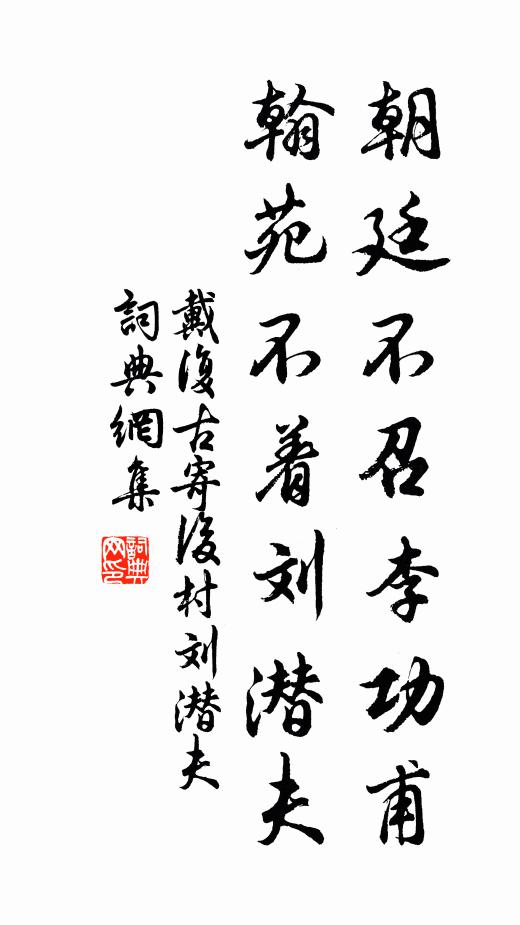 朝廷不召李功甫
翰苑不着刘潜夫
戴復古寄後村刘潜夫
詞典網集
詞典网印